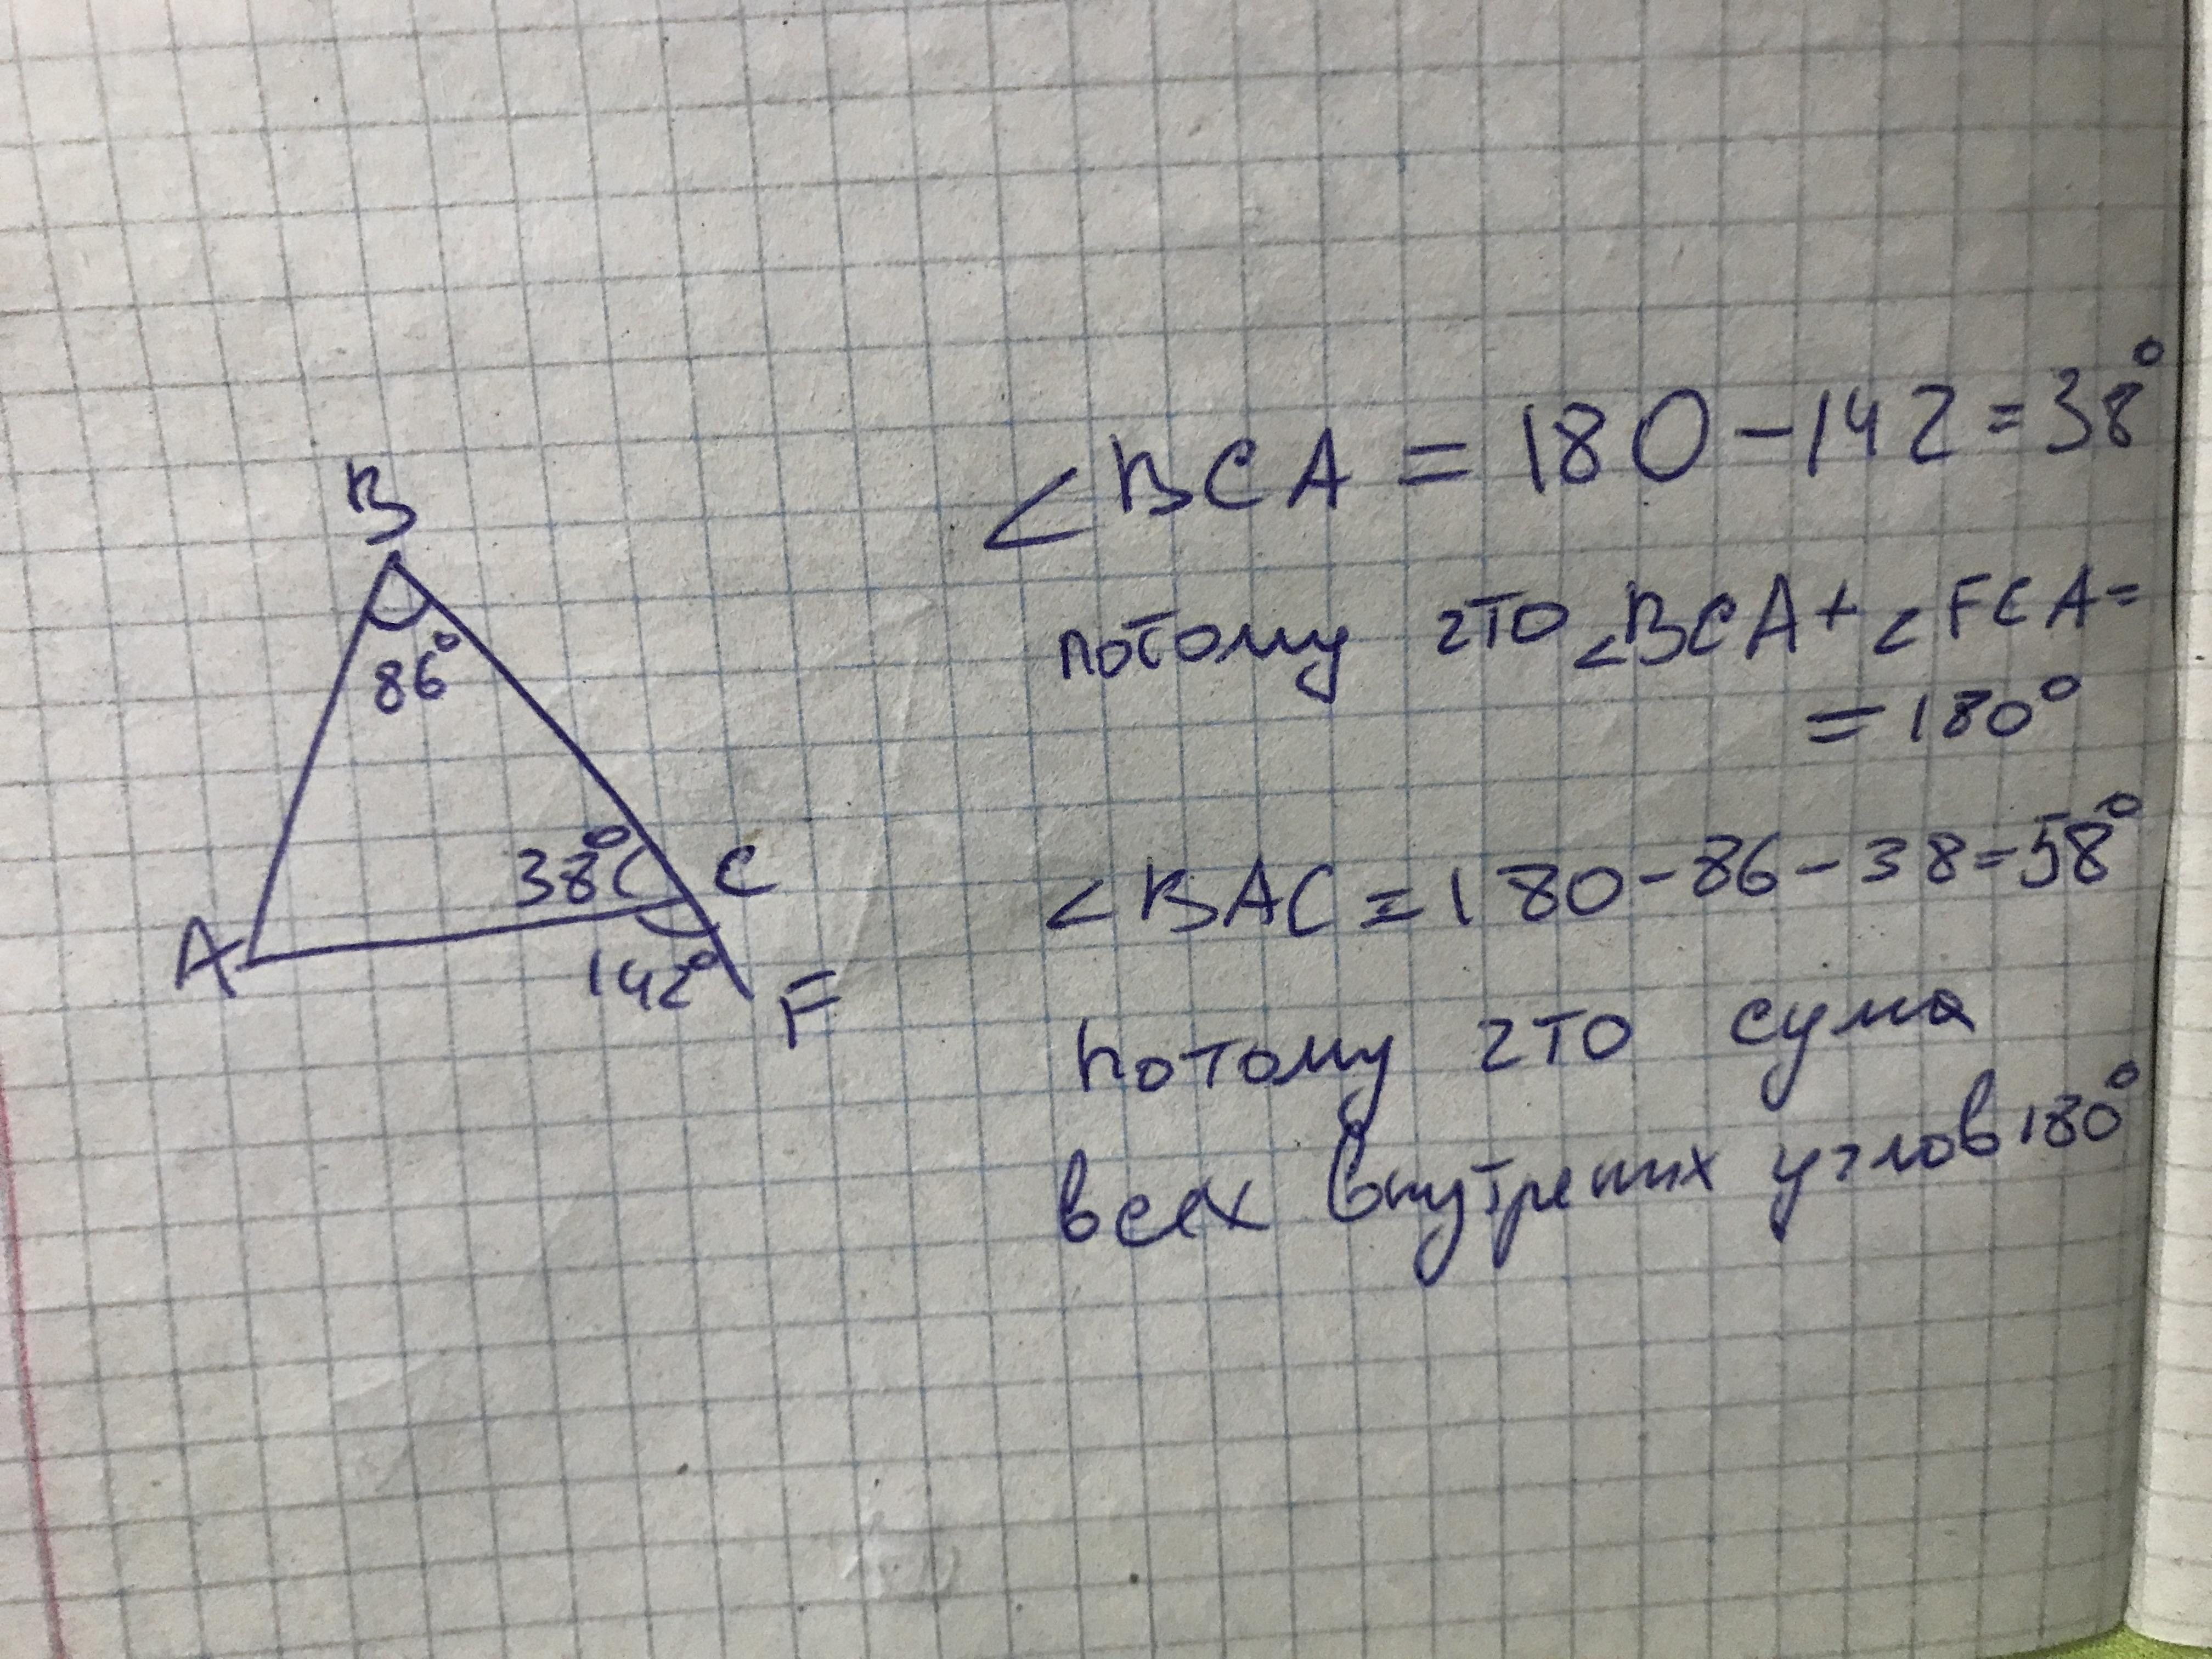 B
86°
38°
C
A
142°
F
∠BCA = 180-142=38°
потому что ∠BCA+∠FCA=
=180°
∠BAC=180-86-38=58°
потому что сума
всех внутрених углов 180°